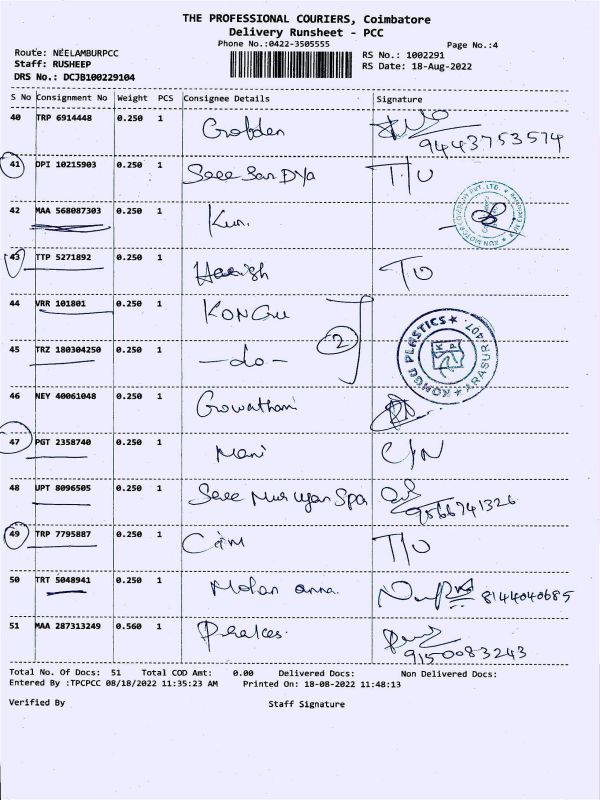 THE PROFESSIONAL COURIERS, Coimbatore
Delivery Runsheet - PCC
Phone No.:0422-3505555
Page No.:4
Route: NEELAMBURPCC
RS No.: 1002291
Staff: RUSHEEP
RS Date: 18-Aug-2022
DRS No.: DCJB100229104
S No Consignment No Weight PCS Consignee Details Signature
40 TRP 6914448 0.250 1 Golden
9443753574
41 DPI 10215903 0.250 1 T/U
42 MAA 568087303 0.250 1
43 TTP 5271892 0.250 1 Harish TO
44 VRR 101801 0.250 1 KONGU
2
45 TRZ 180304250 0.250 1 —do—
KONGU PLASTICS ★ ARASUR-407. ★
46 NEY 40061048 0.250 1 Gowatham
47 PGT 2358740 0.250 1 Mani C/N
48 UPT 8096505 0.250 1 Sree Murugan Spa
9566741326
49 TRP 7795887 0.250 1 T/U
50 TRT 5048941 0.250 1 Mohan anna. 8144040685
51 MAA 287313249 0.560 1
9150083243
Total No. Of Docs: 51 Total COD Amt: 0.00 Delivered Docs: Non Delivered Docs:
Entered By :TPCPCC 08/18/2022 11:35:23 AM Printed On: 18-08-2022 11:48:13
Verified By Staff Signature